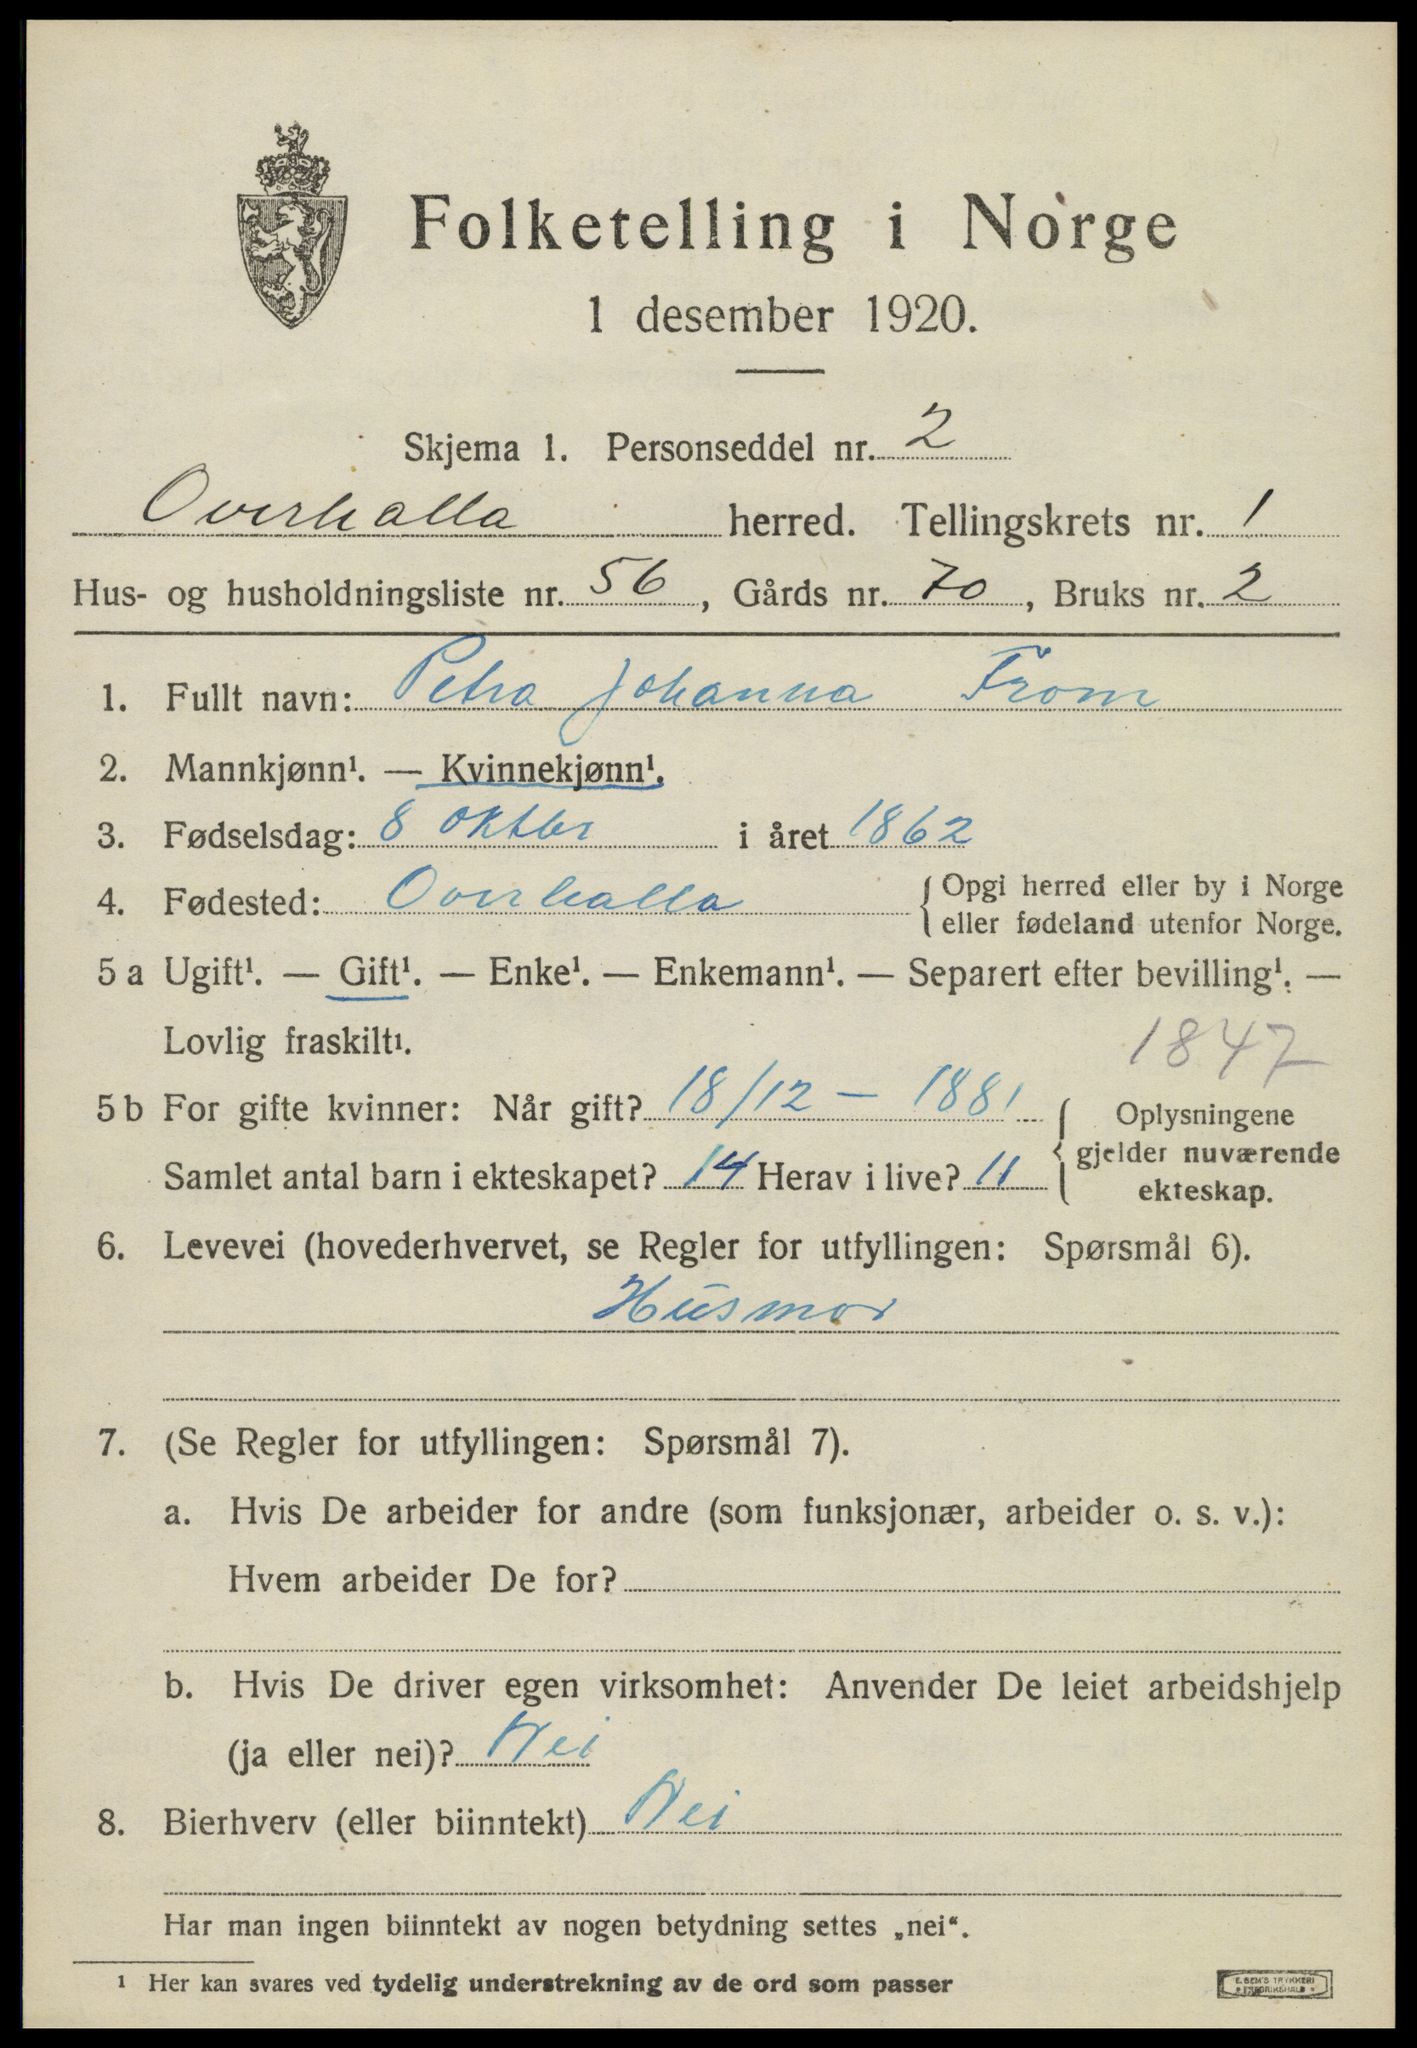 Folketelling i Norge
1 desember 1920.
Skjema 1. Personseddel nr. 2
Overhalla herred. Tellingskrets nr. 1
Hus- og husholdningsliste nr. 56, Gårds nr. 70, Bruks nr. 2
1. Fullt navn: Petra Johanna From
2. Mannkjønn¹. — Kvinnekjønn¹.
3. Fødselsdag: 8 oktbr i året 1862
4. Fødested: Overhalla { Opgi herred eller by i Norge
eller fødeland utenfor Norge.
5 a Ugift¹. — Gift¹. — Enke¹. — Enkemann¹. — Separert efter bevilling¹. —
Lovlig fraskilt¹.
1847
5 b For gifte kvinner: Når gift? 18/12 — 1881 { Oplysningene
gjelder nuværende
Samlet antal barn i ekteskapet? 14 Herav i live? 11
ekteskap.
6. Levevei (hovederhvervet, se Regler for utfyllingen: Spørsmål 6).
Husmor
7. (Se Regler for utfyllingen: Spørsmål 7).
a. Hvis De arbeider for andre (som funksjonær, arbeider o. s. v.):
Hvem arbeider De for?
b. Hvis De driver egen virksomhet: Anvender De leiet arbeidshjelp
(ja eller nei)? Nei
8. Bierhverv (eller biinntekt) Nei
Har man ingen biinntekt av nogen betydning settes „nei“.
¹ Her kan svares ved tydelig understrekning av de ord som passer
E. SEM'S TRYKKERI
FREDRIKSHALD